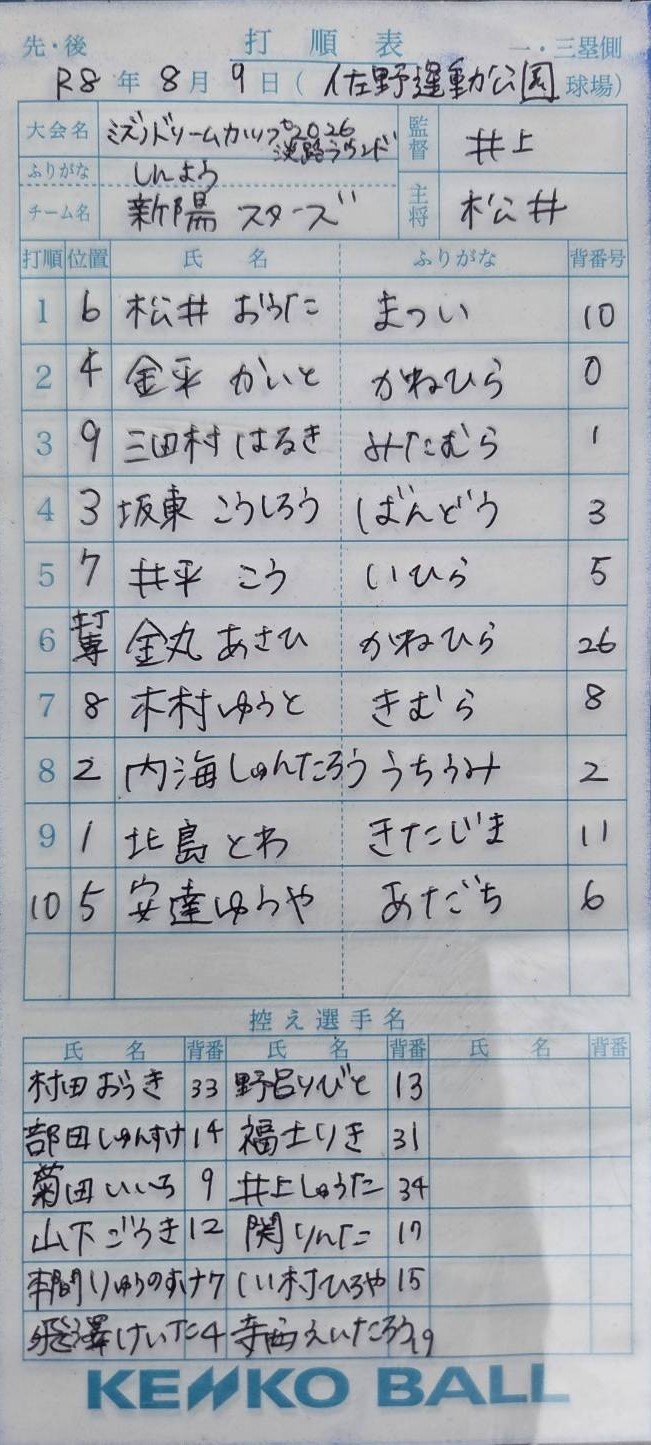 先・後 打順表 一・三塁側
R8年8月9日(佐野運動公園球場)
大会名 ミズノドリームカップ2026 淡路ラウンド 監督 井上
ふりがな しんよう
チーム名 新陽スターズ 主将 松井
打順 位置 氏名 ふりがな 背番号
1 6 松井 おうた まつい 10
2 4 金平 かいと かねひら 0
3 9 三田村 はるき みたむら 1
4 3 坂東 こうしろう ばんどう 3
5 7 井平 こう いひら 5
6 打専 金丸 あさひ かねひら 26
7 8 木村 ゆうと きむら 8
8 2 内海 しゅんたろう うちうみ 2
9 1 北島 とわ きたじま 11
10 5 安達 ゆうや あだち 6
控え選手名
氏名 背番 氏名 背番 氏名 背番
村田 おうき 33 野呂 りびと 13
部田 しゅんすけ 14 福士 りき 31
菊田 いいち 9 井上 しゅうた 34
山下 ごうき 12 関 りんた 17
本間 りゅうのすけ 7 村 ひろや 15
飛澤 けいた 4 寺西 えいたろう 19
KENKO BALL